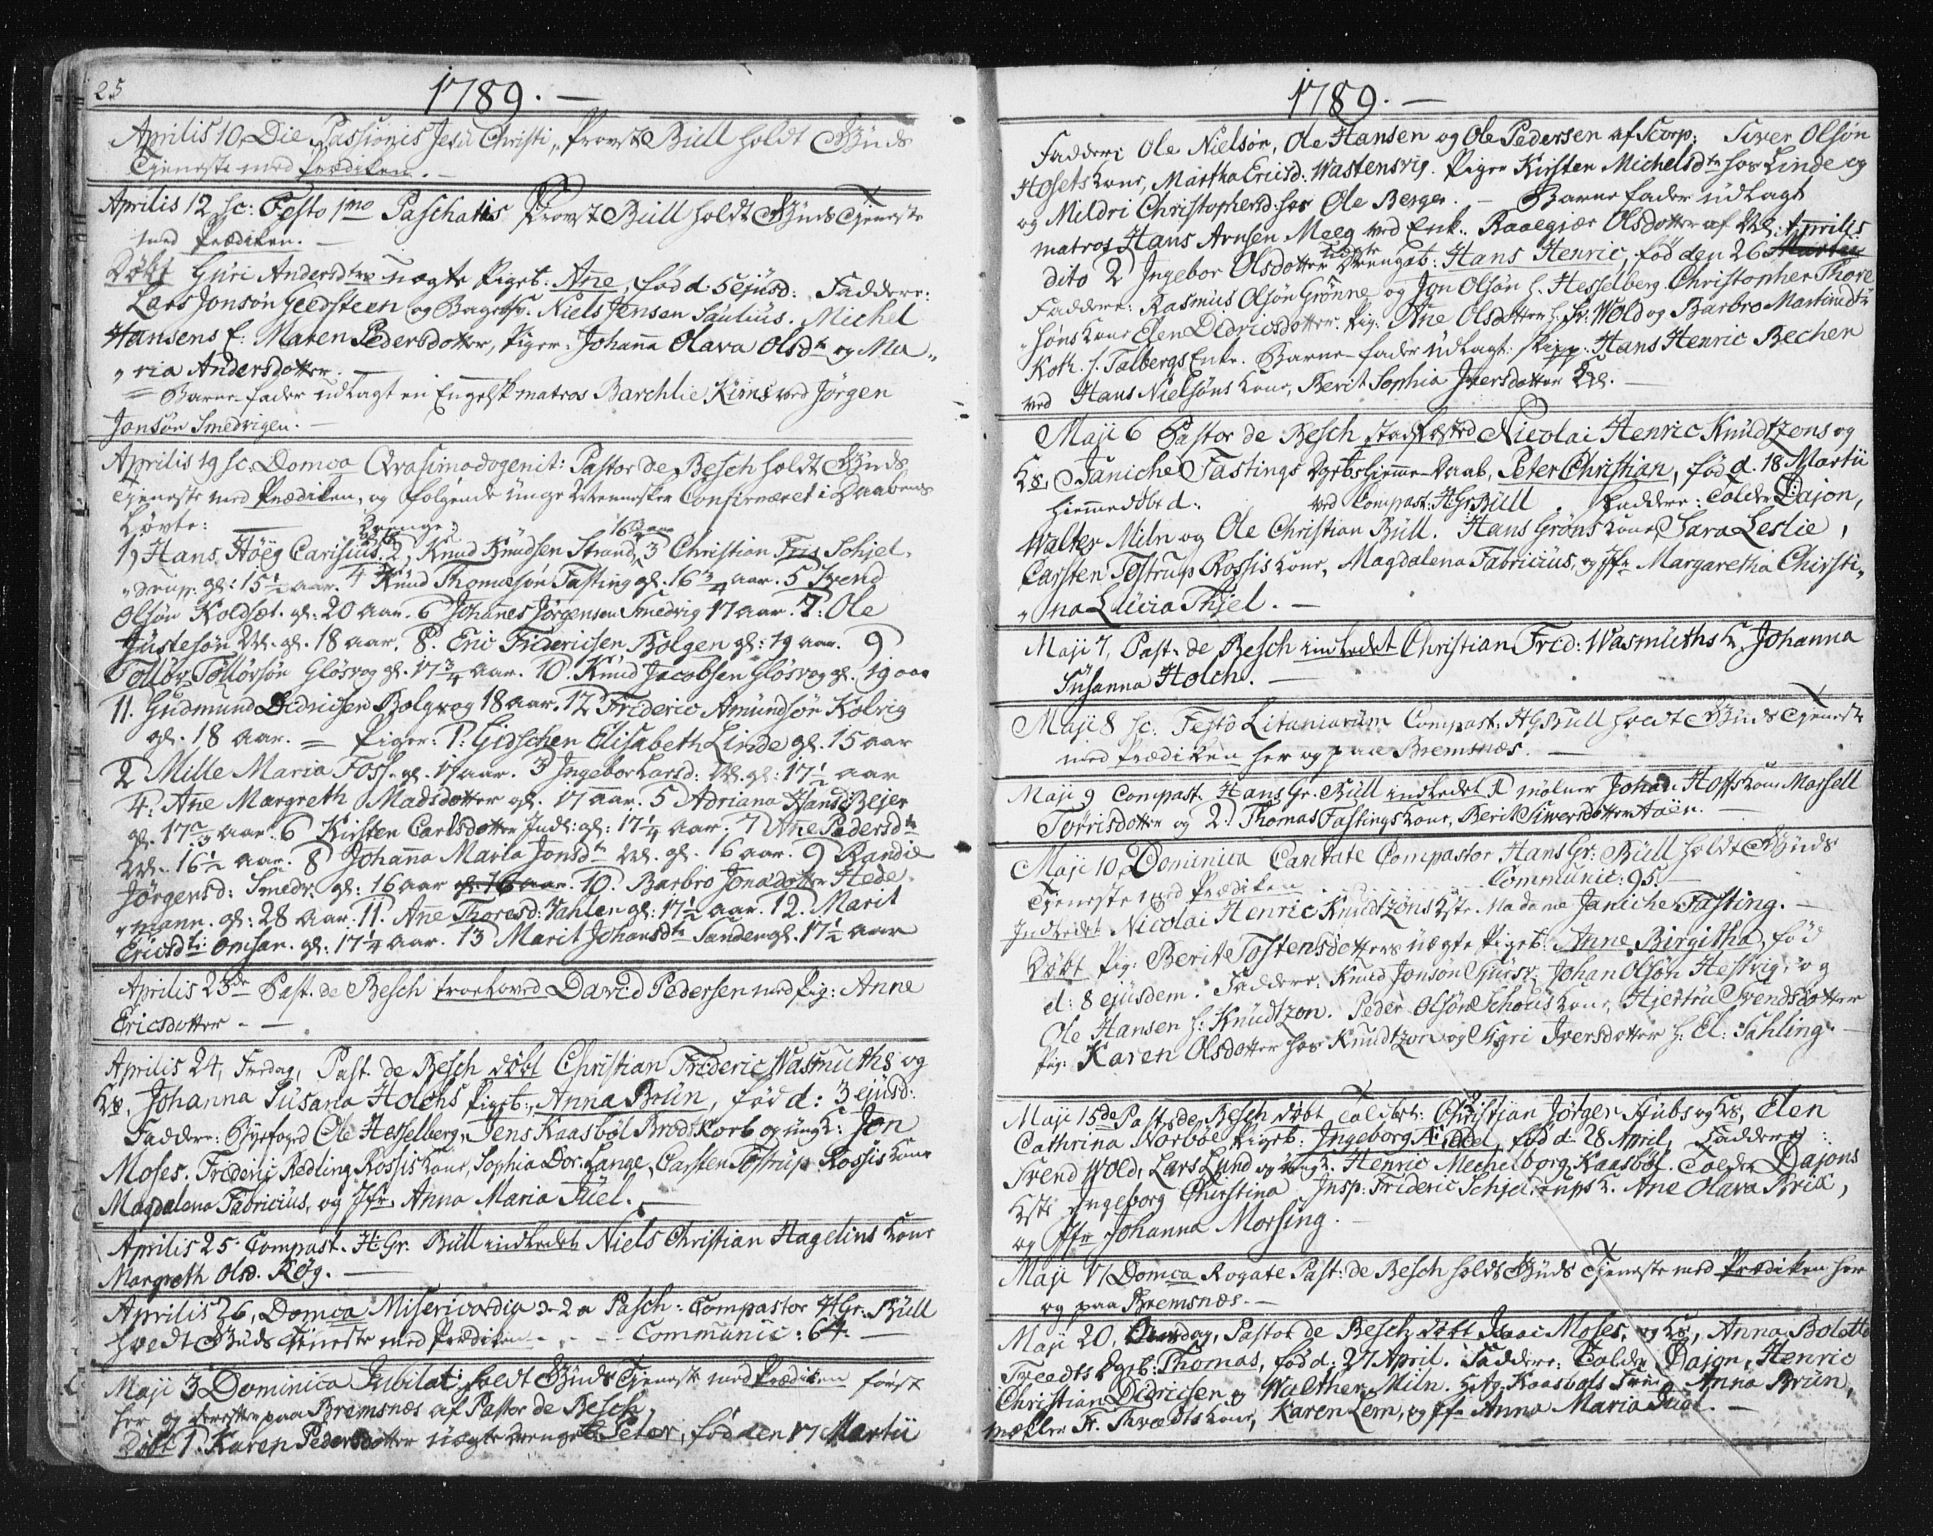 25
1789. —
Aprilis 10, Die Passionis Jesu Christi, Provst Büll holdt Guds
Tjeneste med Prædiken. —
Aprilis 12 sc: Festo 1mo Paschatis Provst Büll holdt Guds Tjeneste
med Prædiken. —
Døbt Guri Andersdtrs uægte Pigeb: Ane, fød d: 5 ejusd: Faddere:
Lars Jonsøn Geedsteen og Niels Jensen Saulius. Michel
Hansens E: Maren Pedersdotter, Piger: Johanna Olava Olsdtr og Ma„
„ria Andersdotter. —
= Barne fader udlagt en Engelsk matros Barchlie Kims ved Jörgen
Jonsøn Smedvigen. —
Aprilis 19 sc. Domca Qvasimodogenit: Pastor de Besch holdt Guds
Tjeneste med Prædiken, og følgende unge Mennesker Confirmæret i Daabens
Løvte: — Drenge:
1, Hans Höeg Carisius. 2, Knud Knudsen Strand, 16¾ aar 3 Christian Fris Schjel„
„drup. gl: 15½ aar. 4 Knud Thomæsøn Fasting gl. 16¾ aar. 5 Svend
Olsøn Koldset. gl: 20 aar. 6 Johannes Jørgensen Smedvig 17 aar. 7: Ole
Justesøn Vl. gl. 18 aar. 8. Eric Fridericsen Bolgen gl: 19 aar. 9
Tollöv Tollövsön Glösvog gl. 17¾ aar. 10. Knud Jacobsen Glösvog gl. 19 aar
11. Gudmund Didricsen Bolgvog 18 aar. 12 Frideric Amundsön Kolvig
gl. 18 aar. = Piger: 1: Gidschen Elisabeth Linde gl. 15 aar
2 Mille Maria Foss. gl. 17 aar. 3 Ingebor Larsd: Vl. gl: 17½ aar
4. Ane Margreth Madsdotter gl. 17 aar. 5 Adriana Hansd Bejer
gl. 17⅔ aar. 6 Kirsten Carlsdotter Indl: gl: 17¼ aar. 7 Ane Pedersdtr
Vl. 16½ aar. 8 Johanna Maria Jonsdtr Vl. gl. 16 aar. 9 Randie
Jörgensd: Smedv. gl: 16 aar gl: 16 aar. 10. Barbro Jonædotter Hede„
„mann. gl: 28 aar. 11. Ane Thoresd: Vahlen gl: 17½ aar. 12. Marit
Ericsdtr: Omsan. gl: 17¼ aar. 13 Marit Johansdtr Sanden gl. 17½ aar
Aprilis 23de Past. de Besch troeloved David Pedersen med Pig: Anne
Ericsdotter. —
Aprilis 24, Fredag, Past. de Besch döbt Christian Frideric Wasmuths og
Hs. Johanna Susana Holchs Pigeb:, Anna Brün, fød d: 3 ejusd:
Faddere: Byefoged Ole Hesselberg, Jens Kaasböl Brodtkorb og ungk: Jon
Moses. Frideric Redling Rossis Kone, Sophia Dor: Lange, Carsten Tostrup Rossis Kone
Magdalena Fabricius, og Jfr. Anna Maria Juel. —
Aprilis 25 Compast. H. Gr. Büll indledet Niels Christian Hagelins Kone
Margreth Olsd. Røg. —
Aprilis 26, Domca Misericordia 2 a Pasch: Compastor H Gr. Büll
hoedt Guds Tjeneste med Prædiken. - - - Communic: 64. —
Maji 3 Dominica Jubilat: holdt Guds Tjeneste med Prædiken først
her og derefter paa Bremsnæs af Pastor de Besch.
Døbt 1. Karen Pedersdotter uægte Drengeb: Peter, fød den 17 Martii
1789. —
Fadderi Ole Nielsøn, Ole Hansen og Ole Pedersen af Scorp: Siver Olsøn
Hosets Kone, Martha Ericsd: Wastensvig. Piger Kirsten Michelsdtr hos Linde og
og Mildri Christophersd. hos Ole Berger. — Barne fader udlagt
matros Hans Arnsen Meeg ved Enk: Raaegjær Olsdotter af Vl:
dito 2 Ingebor Olsdotter uægte Drengeb: Hans Henric, fød den 26 Martii Aprilis
Faddere: Rasmus Olsøn Grønne og Jon Olsøn h. Hesselberg. Christopher Thore„
„søns Kone Elen Didricsdotter. Pig: Ane Olsdotter h. Hr. Wold og Barbro Martinidtr
Kok h. Talbergs Enke. Barne-fader udlagt: skipp: Hans Henric Bechen
ved Hans Nielsøns Kone, Berit Sophia Iversdotter Vl. —
Maji 6 Pastor de Besch stadfæsted Nicolai Henric Knudtzons og
Hs. Janiche Fastings Drb. hjemme-Daab, Peter Christian, fød d. 18 Martii
hiemmedøbt d. ved Compast. H. Gr Büll Faddere: Tolder Dajon,
Walter Miln og Ole Christian Büll. Hans Gröns Kone Sara Leslie,
Carsten Tostrup Rossis Kone, Magdalena Fabricius, og Jfr Margaretha Christi„
„na Lucia Thjel. —
Maji 7, Past. de Besch indledet Christian Frid: Wasmuths K. Johanna
Susanna Holch. —
Maji 8 sc. Festo Litaniarum Compast. H G Büll holdt Guds Tjeneste
med Prædiken her og paa Bremsnæs. —
Maji 9 Compast. Hans Gr. Büll indledet 1 mölner Johan Hoffs Kone Marsell
Torrisdotter og 2. Thomas Fastings Kone, Berit Siwersdotter Aaen.
Maji 10, Dominica Cantate Compastor Hans Gr: Büll holdt Guds
Tjeneste med Prædiken Communic: 95. —
Indledet Nicolai Henric Knudtzons Kste. Madame Janiche Fasting. —
Døbt Pig: Berit Tostensdotters uægte Pigeb. Anne Birgitha, fød
d: 8 ejusdem. Faddere: Knud Jonsøn, Johan Olsøn Hestvig, og
Ole Hansen h: Knudtzon. Peder Olsøn Kone, Hjertru Svendsdotter
Pig: Karen Olsdotter hos Knudtzon og Sigri Iversdotter h. El: Sahling. —
Maji 15de Past. de Besch döbt Tolbet: Christian Jörgen Stubs og Hs. Elen
Cathrina Norboe Pigeb: Ingeborg, fød d: 28 April, Faddere:
Svend Wold, Lars Lund og ungk. Henric Mechelborg Kaasböl. Tolder Dajons
Kste Ingeborg Christina Insp: Frideric Schjelderups K. Ane Olava Brix,
og Jfr Johanna Morsing. —
Maji 17 Domca Rogate Past: de Besch holdt Guds Tjeneste med Prædiken her
og paa Bremsnæs. —
Maji 20, Onsdag, Pastor de Besch döbt Isaac Moses, og Hs, Anna Bolette
Tvedts Dreb: Thomas, fød d: 27 April. Faddere: Tolder Dajon, Henric
Christian Didricsen og Walther Miln. Kaasböls Anna Brün,
mækler Fr. Thvedts Kone, Karen Lem, og Jfr Anna Maria Juel. —